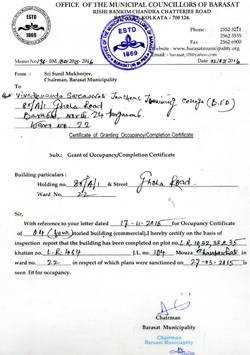 OFFICE OF THE MUNICIPAL COUNCILLORS OF BARASAT
RISHI BANKIM CHANDRA CHATTERJEE ROAD
KOLKATA - 700 124.
ESTD
1869
ESTD
1869
Phone : 2552 3273
2562 3655
2562 6900
Website : www.barasatmunicipality.org
Memo No
From : Sri Sunil Mukherjee,
Chairman, Barasat Municipality
Vivekananda Sarcarenda Teachers Training College (B.ED)
89/A/1 Ghola Road
Barasat, North 24
Ward No. 22
Certificate of Granting Occupancy/Completion Certificate
Sub.: Grant of Occupancy/Completion Certificate
Building particulars :
Holding no. 89/A/1 & Street Ghola Road.
Ward No. 22
Sir,
With reference to your letter dated 17-11-2015 for Occupancy Certificate
of 04 (four) storied building (commercial),I hereby certify on the basis of
inspection report that the building has been completed on plot no L.R. 1032, 35 & 35
khatian no. L-R-464 J.L. 104 Mouza
ward no. 22 in respect of which plans were sanctioned on 27-03-2015 is
seen fit for occupancy.
Chairman
Barasat Municipality
Chairman
Barasat Municipality